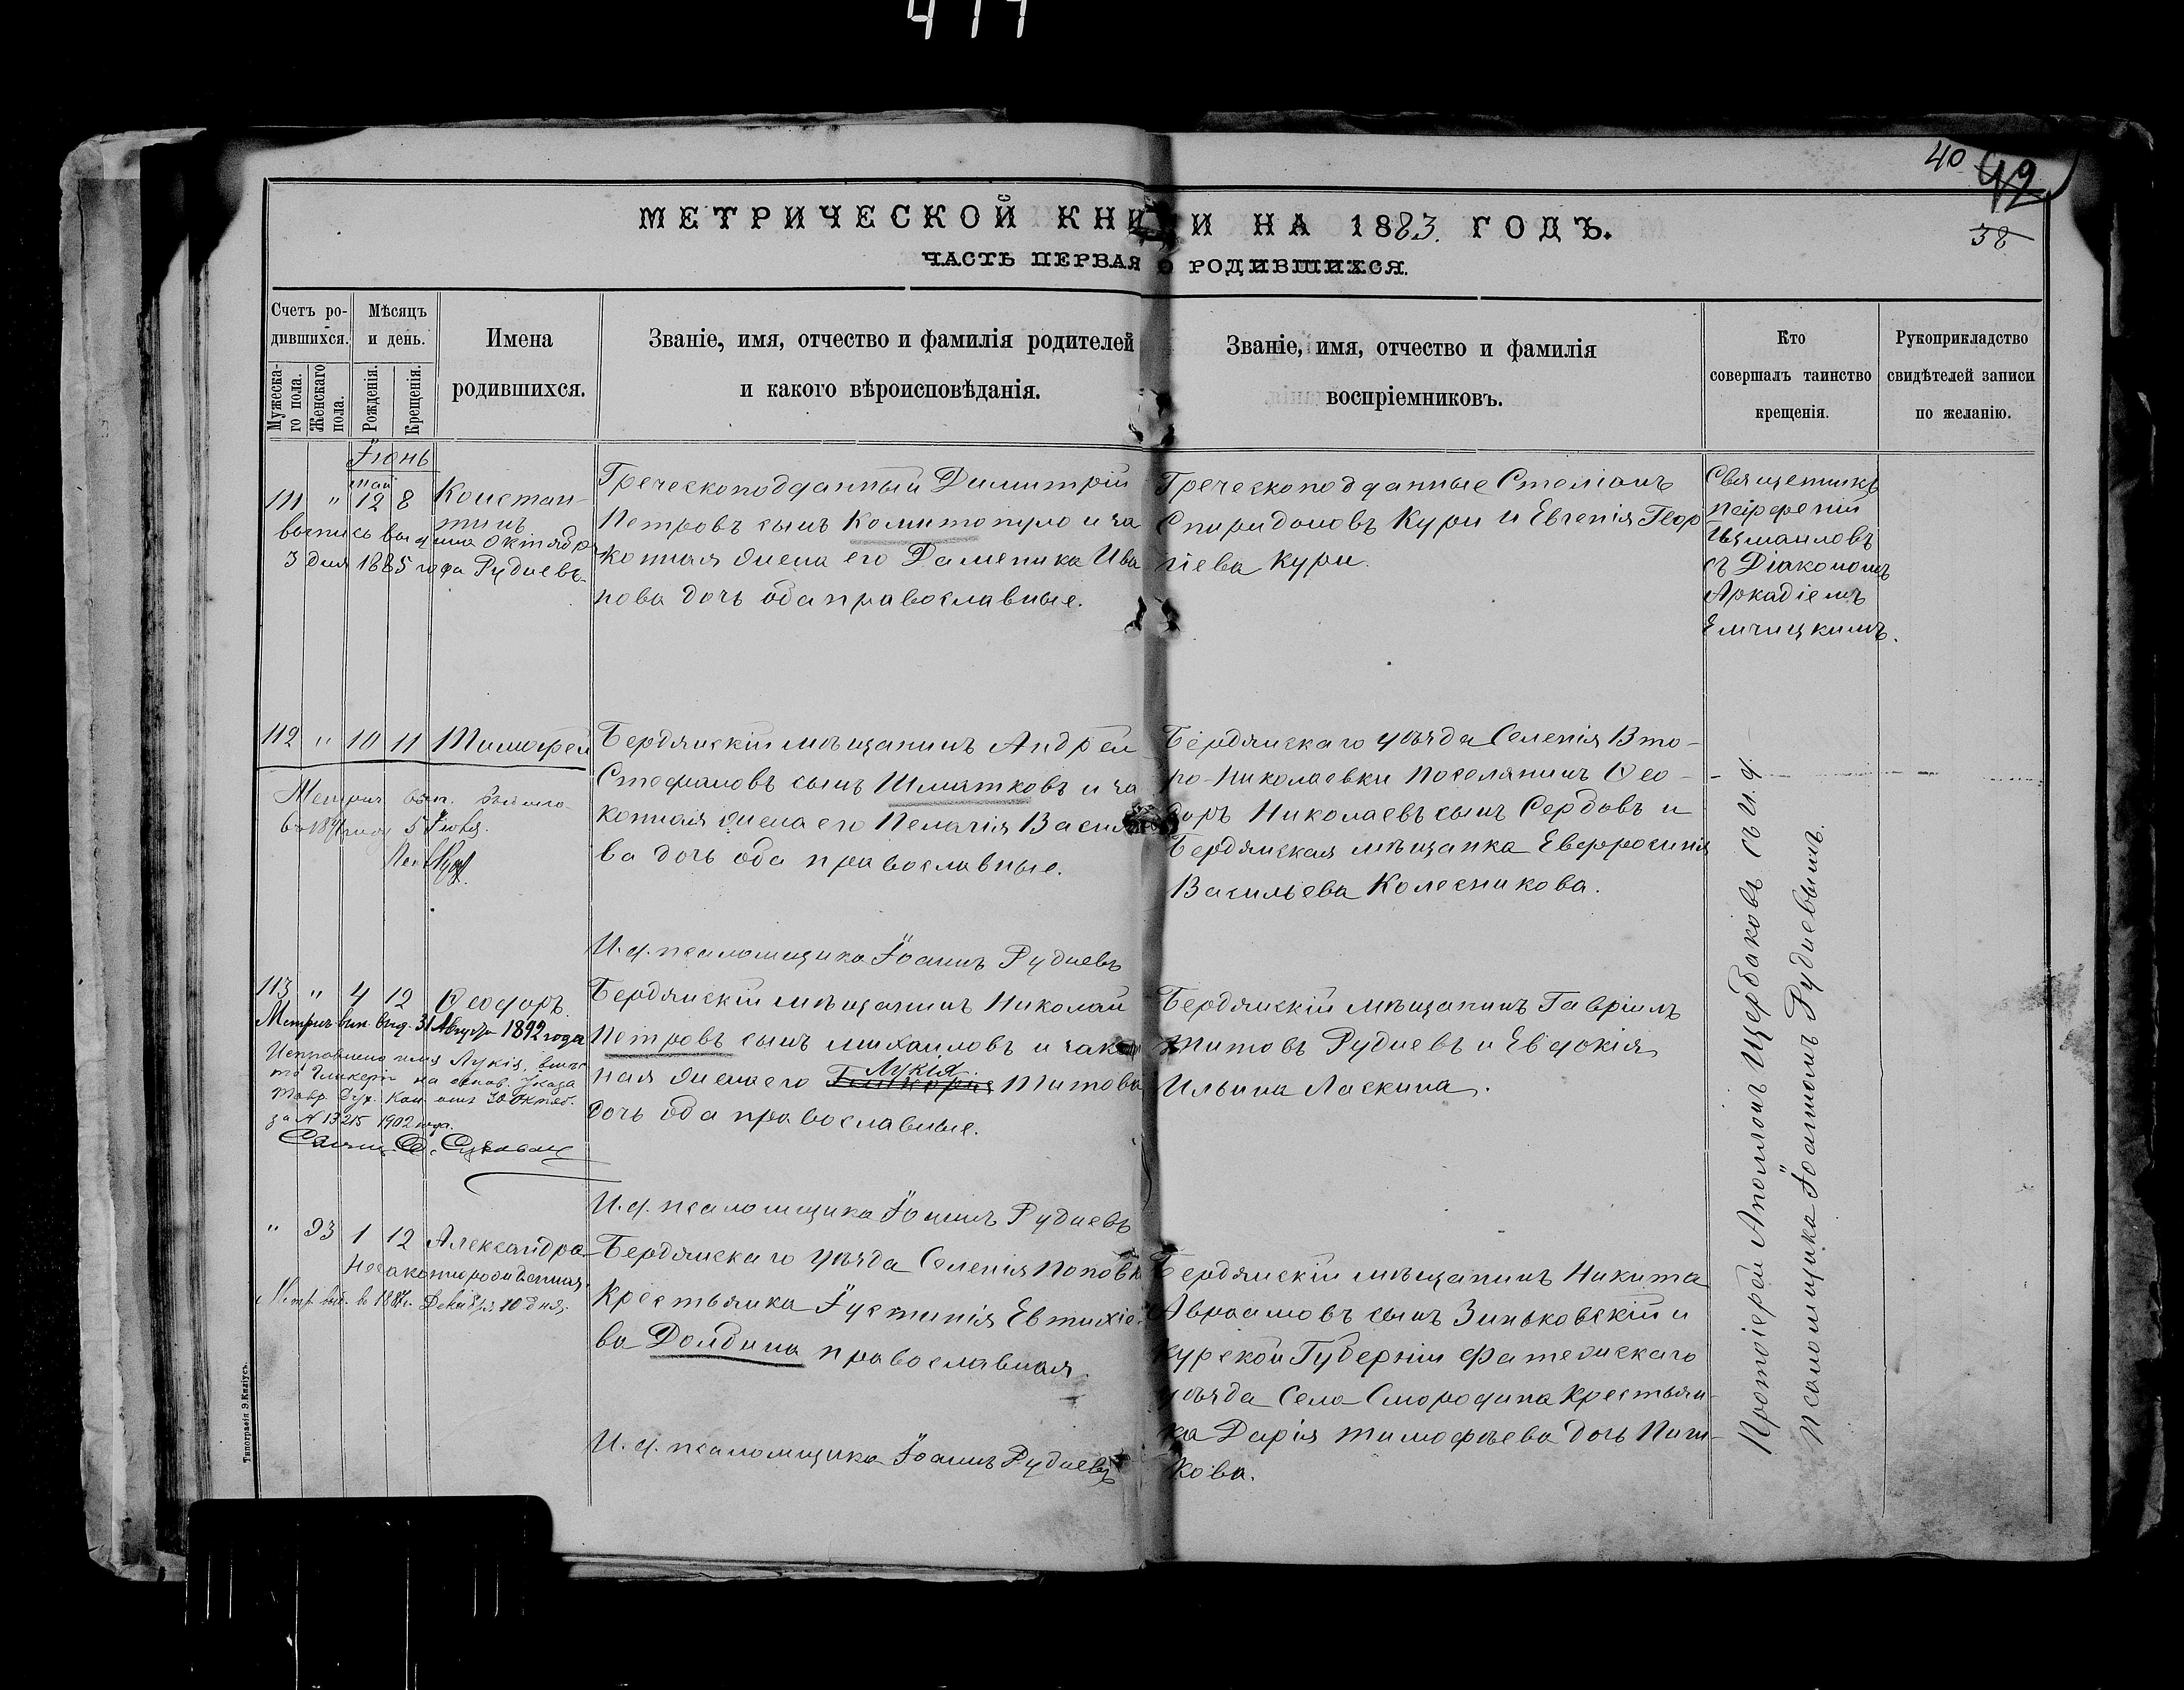 40
42
38
МЕТРИЧЕСКОЙ КНИГИ НА 1883. ГОДЪ.
ЧАСТЬ ПЕРВАЯ О РОДИВШИХСЯ.
Счетъ ро-
дившихся.
Мужеска-
го пола.
Женскаго
пола.
Мѣсяцъ
и день.
Рожденія.
Крещенія.
Имена
родившихся.
Званіе, имя, отчество и фамилія родителей
и какого вѣроисповѣданія.
Званіе, имя, отчество и фамилія
воспріемниковъ.
Кто
совершалъ таинство
крещенія.
Рукоприкладство
свидѣтелей записи
по желанію.
Іюнь
май
111 " 12 8 Констан-
тинъ
выпись выдана Октября
3 дня 1885 года Рудневъ.
Греческоподданный Димитрій
Петровъ сынъ Комитопуло и за
конная жена его Ива
нова дочь оба православные.
Греческоподданные Стеліанъ
Спиридоновъ Кури и Евгенія Геор
гіева Кури.
Священникъ
Парфеній
Измаиловъ
съ Діакономъ
Аркадіемъ
112 " 10 11 Тимофей
Метрич. вып.
5 Іюля.
Бердянскій мѣщанинъ Андрей
Стефановъ сынъ Шматковъ и за
конная жена его Пелагія Василье
ва дочь оба православные.
И. д. псаломщика Іоаннъ Рудневъ
Бердянскаго уѣзда Селенія Вто-
ро-Николаевки поселянинъ Ѳео-
доръ Николаевъ сынъ Сердовъ и
Бердянская мѣщанка Евфросинія
Васильева Колесникова.
113 " 4 12 Ѳеодоръ.
Метрич. вып. выд. 31 Августа 1892 года
Исправлено имя Лукія, вмѣс
то Гликерія на основ. Указа
Тавр. Дух. Кон. отъ 30 Октяб.
за № 13215 1902 года.
Бердянскій мѣщанинъ Николай
Петровъ сынъ Михаиловъ и закон
ная жена его Гликерія Лукія Титова
дочь оба православные.
И. д. псаломщика Іоаннъ Рудневъ
Бердянскій мѣщанинъ Гавріилъ
Титовъ Рудневъ и Евдокія
Ильина Ласкина.
" 93 1 12 Александра
Незаконнорожденная.
Метр. выд. в 1887 г. Декабря 10 дня.
Бердянскаго уѣзда Селенія Поповки
Крестьянка Іустинія Евтихіе
ва Долбина православная.
И. д. псаломщика Іоаннъ Рудневъ
Бердянскій мѣщанинъ Никита
Авраамовъ сынъ Зиньковскій и
Курской Губерніи Фатежскаго
уѣзда Села Смородина Крестьян-
ка Дарія Тимофѣева дочь
кова.
Протоіерей Аполлонъ Щербаковъ съ И. д.
Псаломщика Іоанномъ Рудневымъ.
Типографія Э. Киліусъ.